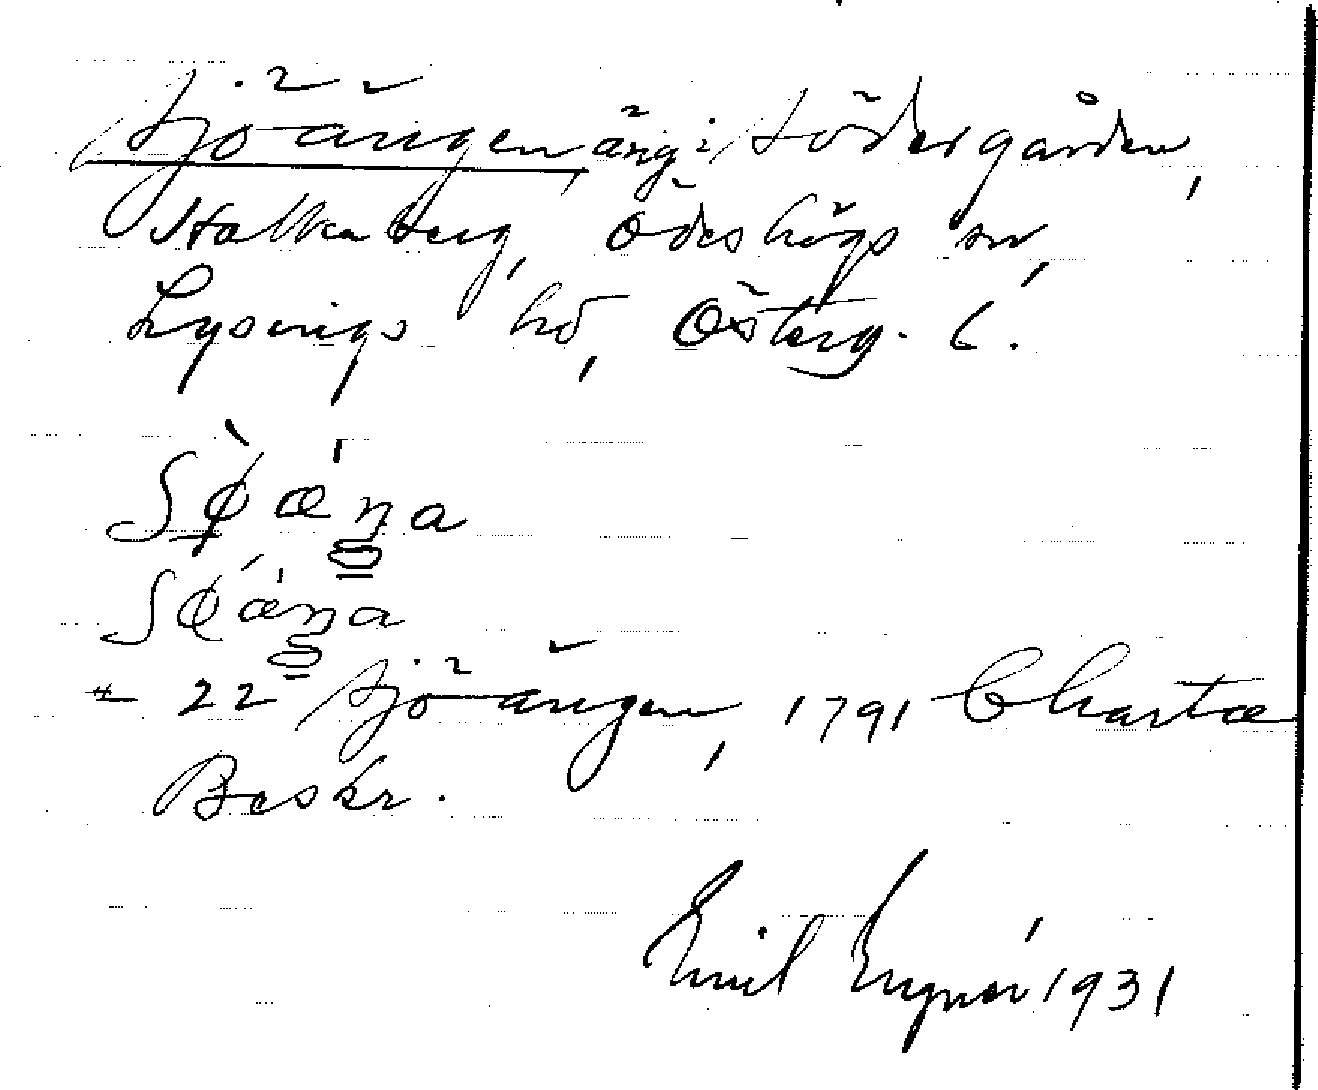 Sjöängen, äng i Södergården,
Stolkaberg, Ödeshögs sn,
Lysings hd, Österg. l.
= 22 Sjö-ängen, 1791 Charta
Beskr.
Emil Lugnér 1931